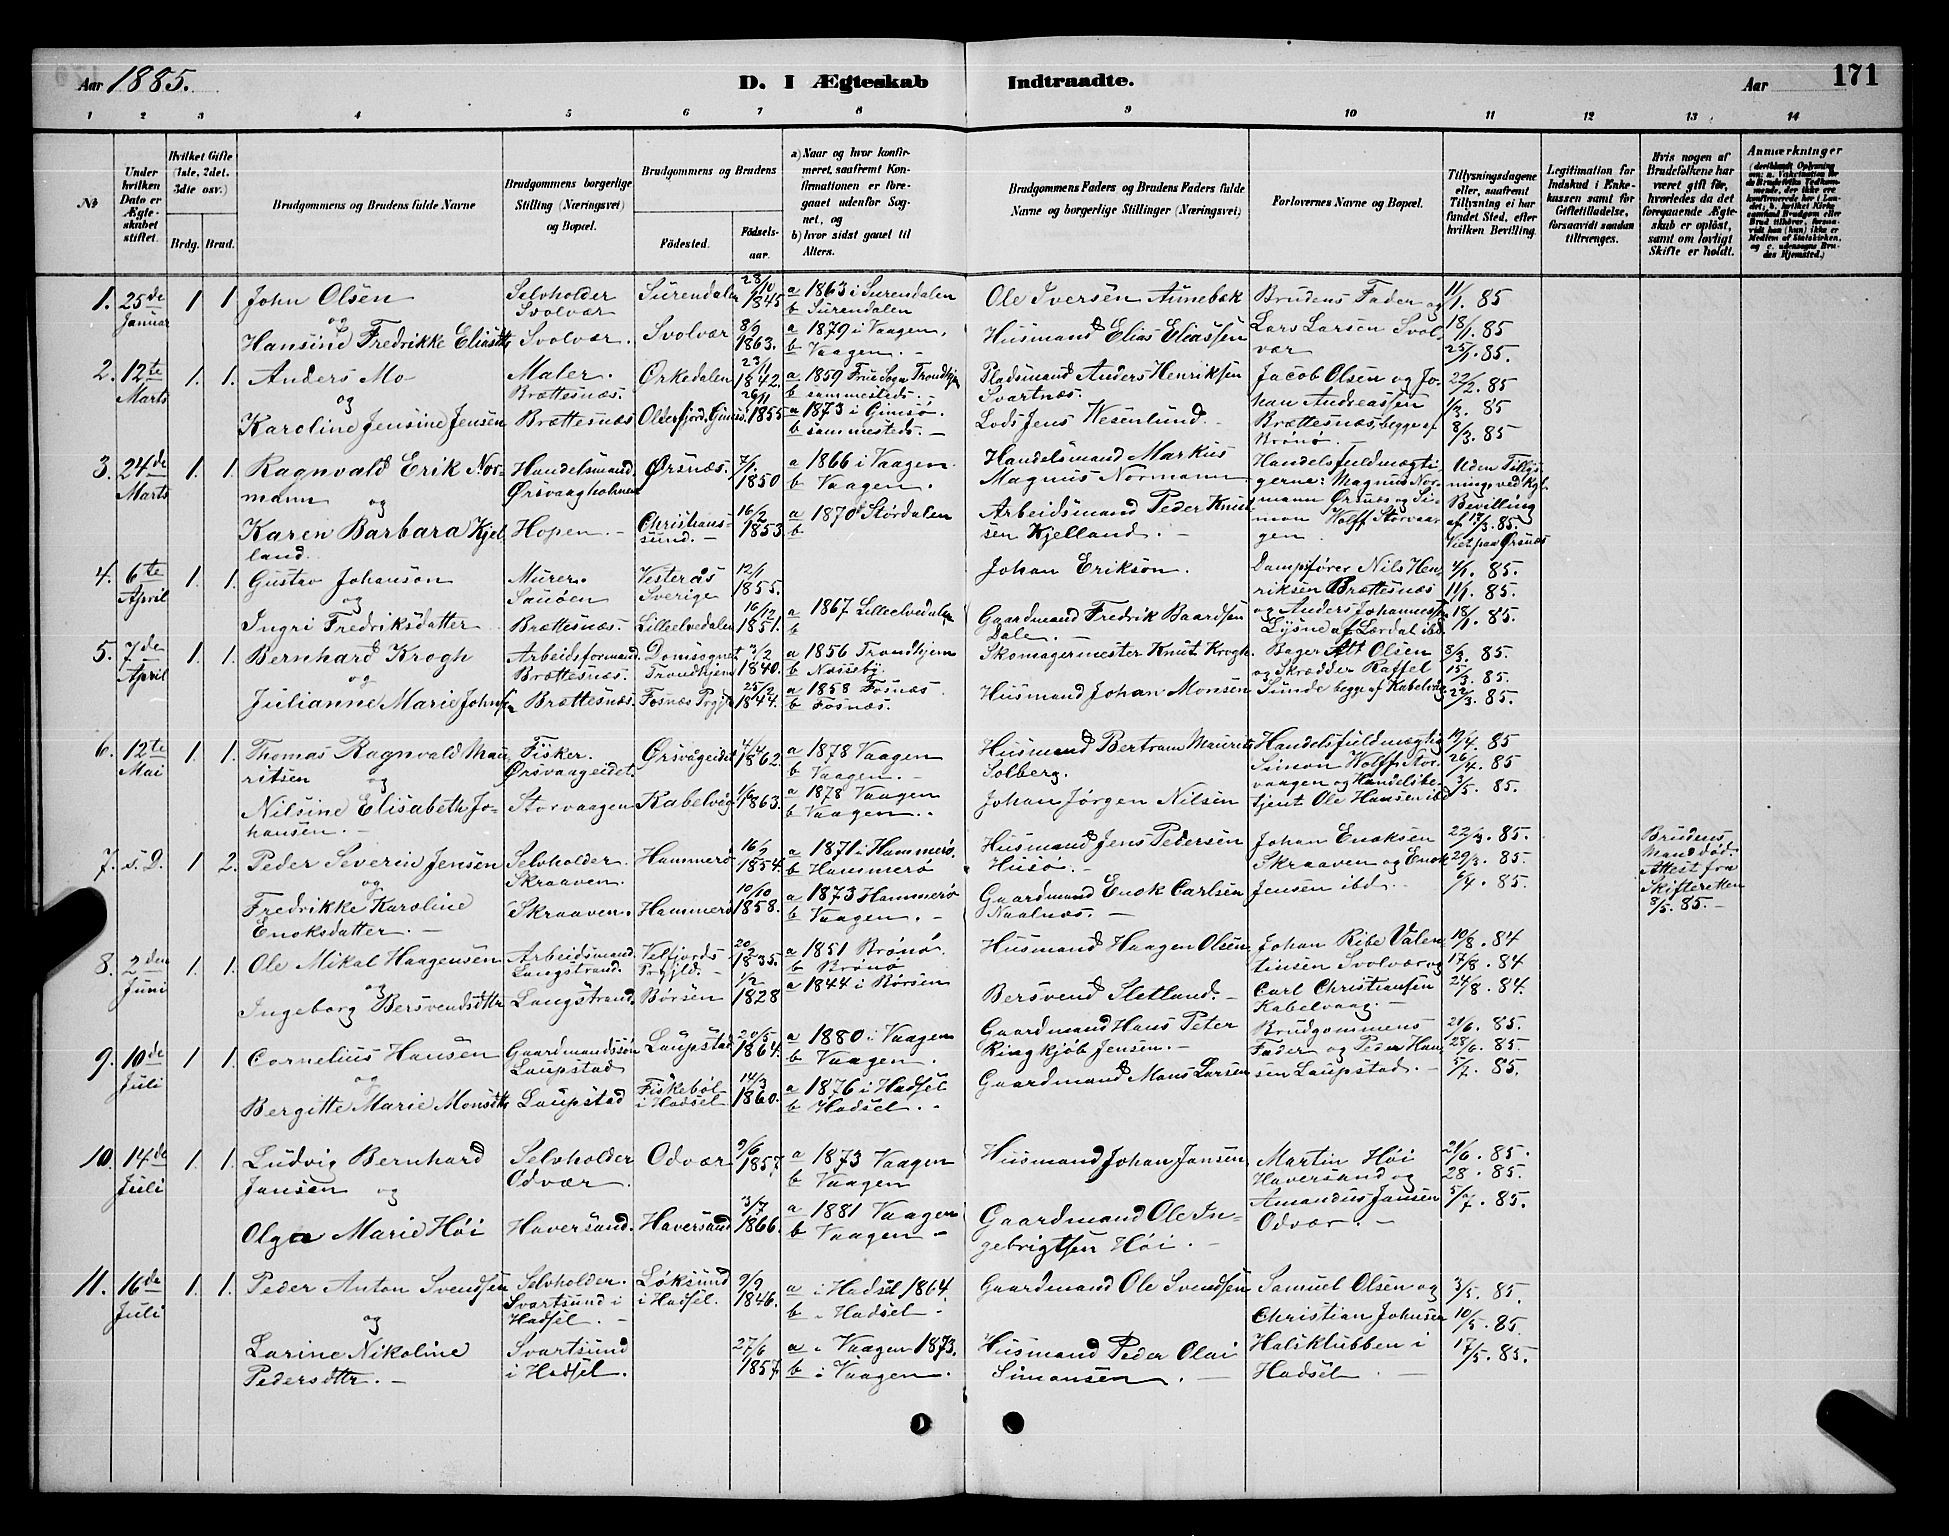 Aar 1885.
D. I Ægteskab Indtraadte.
Aar
171
1 2 3 4 5 6 7 8 9 10 11 12 13 14
No
Under hvilken Dato er Ægteskabet stiftet.
Hvilket Gifte (1ste, 2det, 3die osv.)
Brdg. Brud.
Brudgommens og Brudens fulde Navne
Brudgommens borgerlige Stilling (Næringsvei) og Bopæl.
Brudgommens og Brudens
Fødested.
Fødselsaar.
a) Naar og hvor konfirmeret, saafremt Konfirmationen er foregaaet udenfor Sognet, og
b) hvor sidst gaaet til Alters.
Brudgommens Faders og Brudens Faders fulde Navne og borgerlige Stillinger (Næringsvei)
Forlovernes Navne og Bopæl.
Tillysningsdagene eller, saafremt Tillysning ei har fundet Sted, efter hvilken Bevilling.
Legitimation for Indskud i Enkekassen samt for Giftetilladelse, forsaavidt saadan tiltrænges.
Hvis nogen af Brudefolkene har været gift før, hvorledes da det foregaaende Ægteskab er opløst, samt om lovligt Skifte er holdt.
Anmærkninger
1. 25de Januar 1 1. John Olsen
og
Hansine Fredrikke Eliasdtr
Selvholder Svolvær
Svolvær.
Surendalen 28/10 1845
Svolvær 8/9 1863.
a 1863 i Surendalen
b Surendalen
a 1879 i Vaagen,
b Vaagen. -
Ole Iversen Aunebæk
Husmand Elias Eliassen
Brudens Fader og
Lars Larsen Svolvær
11/1. 85
18/1. 85
25/1. 85.
2. 12te Marts 1. 1. Anders Mo
og
Karoline Jensine Jensen
Maler. Brættesnæs.
Brættesnæs
Orkedalen 23/1 1842.
Oldersfjord, Gimsø. 26/11 1855
a 1859 Frue Sogn Trondhjem
b sammesteds. -
a 1873 i Gimsø.
b sammesteds. -
Pladsmand Anders Henriksen
Svartnæs.
Lods Jens Wesenlund.
Jacob Olsen og Johan Andreassen
Brættesnæs, begge af
Brønø. -
22/2. 85
1/3. 85
8/3. 85
3. 24de Marts 1. 1. Ragnvald Erik Normann
og
Karen Barbara Kjelland.
Handelsmand. Ørsvaagholmen
Hopen. -
Ørsnæs. 7/1. 1850
Christianssund. - 16/2 1853
a 1866 i Vaagen.
b Vaagen. -
a 1870 Størdalen
b
Handelsmand Markus
Magnus Normann
Arbeidsmand Peder Knutsen Kjelland. -
Handelsfuldmægtigerne: Magnus Normann Ørsnæs og Simon Wolff Storvaagen.
Uden Tillysning ved Kgl. Bevilling af 17/3. 85.
Viet paa Ørsnæs
4. 6te April 1. 1. Gustav Johanson
og
Ingri Fredriksdatter
Murer. Sauøen
Brættesnæs.
Vesterås Sverige 12/1 1855.
Lilleelvedalen 16/12 1851.
a 1867 Lilleelvedalen
b
Johan Erikson.
Gaardmand Fredrik Baardsen
Dale. -
Dampfører Nils Henriksen Brættesnæs
og Anders Johannessen
Lysne af Lærdal ibd.
4/1. 85.
11/1. 85.
18/1. 85.
5. 7de April 1. 1. Bernhard Krogh
og
Julianne Marie Johnsen
Arbeidsformand Brættesnæs.
Brættesnæs.
Domsognet Trondhjem 3/2 1840.
Fosnæs Prgjld 25/2 1844.
a 1856 Trondhjem
b Næsseby.
a 1858 Fosnæs.
b Fosnæs.
Skomagermester Knut Krogh.
Husmand Johan Monsen
Bager Olsen
og Skrædder Raffel
Sunde begge af Kabelvåg
8/3. 85.
15/3. 85.
22/3. 85.
6. 12te Mai 1. 1. Thomas Ragnvald Mauritsen
og
Nilsine Elisabeth Johansen. -
Fisker. Ørsvaageidet.
Storvaagen
Ørsvågeidet 4/4 1862.
Kabelvåg 1/6 1863.
a 1878 Vaagen
b Vaagen. -
a 1878 Vaagen
b Vaagen. -
Husmand Bertram Maurits
Solberg.
Johan Jørgen Nilsen
Handelsfuldmægtig
Simon Wolff Storvaagen og Handelsbetjent Ole Hansen ibd
19/4. 85
26/4. 85
3/5. 85.
7. s. D. 1 2. Peder Severin Jensen
og
Fredrikke Karoline
Enoksdatter. -
Selvholder. Skraaven.
Skraaven.
Hammerø 16/2 1854.
Hammerø 10/10 1858.
a 1871 i Hammerø.
b Hammerø
a 1873 Hammerø
b Vaagen. -
Husmand Jens Pedersen
Husø. -
Gaardmand Enok Carlsen
Naalnæs. -
Johan Enoksen
Skraaven og Enok
Jensen ibd. -
22/3. 85.
29/3. 85.
6/4. 85.
Brudens Mand død. Attest fra Skifteretten 8/5. 85. -
8. 2den Juni 1. 1. Ole Mikal Haagensen
og
Ingeborg Bersvendsdtr
Arbeidsmand. Langstrand.
Langstrand.
Velfjords Prgjld. - 20/2 1835.
Børsen 1/2 1828
a 1851 Brønø.
b Brønø
a 1844 i Børsen
Husmand Haagen Olsen
Bersvend Sletland. -
Johan Ribe Valentinsen Svolvær og
Carl Christiansen
Kabelvaag. -
10/8. 84
17/8. 84
24/8. 84.
9. 10de Juli 1. 1. Cornelius Hansen
og
Bergitte Marie Monsdtr
Gaardmandssøn Laupstad
Laupstad
Laupstad 20/5 1864.
Fiskebøl i Hadsel 14/3 1860.
a 1880 i Vaagen
b Vaagen.
a 1876 i Hadsel
b Hadsel. -
Gaardmand Hans Peter
Ringkjøb Jensen. -
Gaardmand Mons Larsen
Brudgommens
Fader og Peder Hansen Laupstad. -
21/6. 85.
28/6. 85
5/7. 85.
10. 14de Juli 1. 1. Ludvig Bernhard
Jansen og
Olga Marie Høi
Selvholder Odvær.
Haversand.
Odvær 9/6 1857.
Haversand 3/7 1866.
a 1873 Vaagen
b Vaagen
a 1881 Vaagen
b Vaagen -
Husmand Johan Jansen
Gaardmand Ole Ingebrigtsen Høi. -
Martin Høi
Haversand og
Amandus Jansen
Odvær. -
21/6. 85.
28. 85
5/7. 85.
11. 16de Juli 1. 1. Peder Anton Svendsen
og
Larine Nikoline
Pedersdtr. -
Selvholder. Svartsund i Hadsel. -
Svartsund i Hadsel.
Løksund i Hadsel. 9/9 1846.
27/6 1857.
a i Hadsel 1864.
b i Hadsel -
a i Vaagen 1873.
b i Vaagen.
Gaardmand Ole Svendsen
Husmand Peder Olai
Simonsen. -
Samuel Olsen og
Christian Johnsen
Halsklubben i
Hadsel -
3/5. 85.
10/5. 85.
17/5. 85.